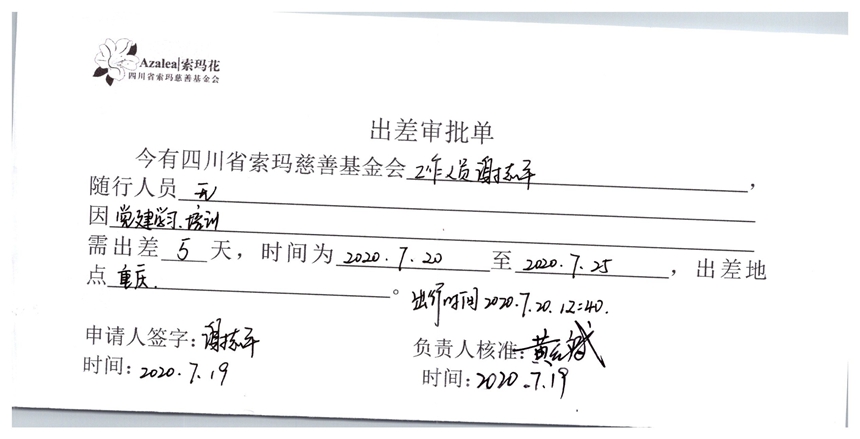 Azalea|索玛花
四川省索玛慈善基金会
出差审批单
今有四川省索玛慈善基金会 工作人员 谢志平 ，
随行人员 无
因 党建学习、培训
需出差 5 天，时间为 2020.7.20 至 2020.7.25 ，出差地
点 重庆. 。 出行时间2020.7.20.12:40.
申请人签字：谢志平 负责人核准：黄红斌
时间：2020.7.19 时间：2020.7.19